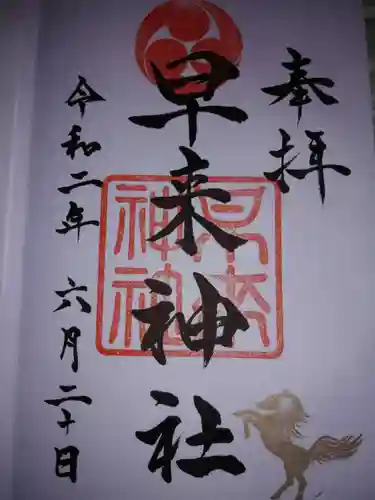 奉拝
早来神社
令和二年 六月二十日
早来
神社